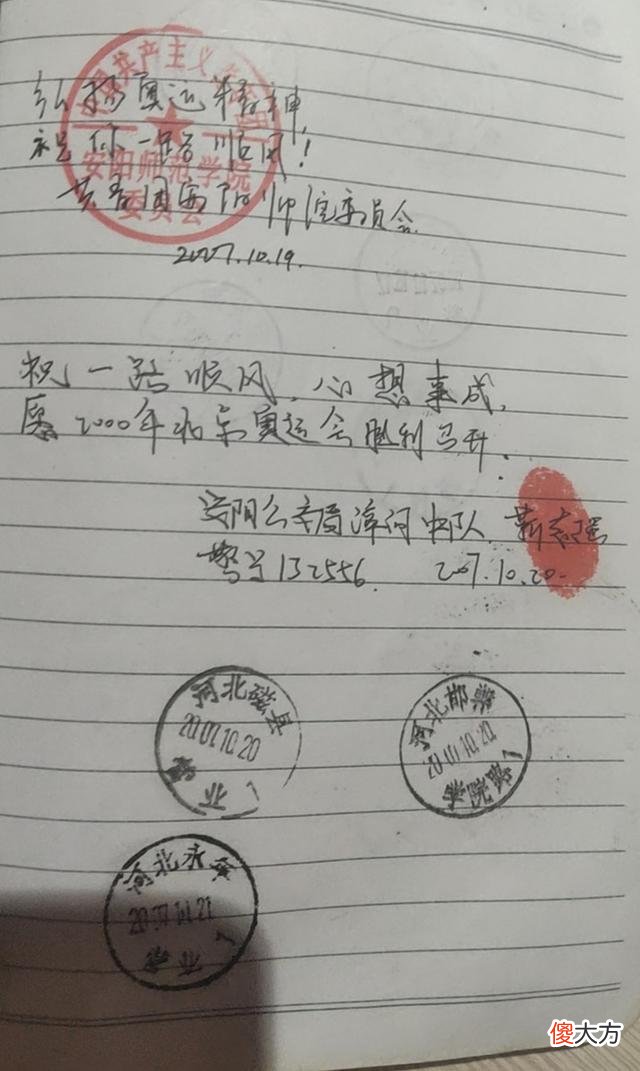 中国共产主义青年团
安阳师范学院
委员会
弘扬奥运精神,
祝你一路顺风!
共青团安阳师院委员会
2007.10.19.
祝一路顺风、心想事成,
愿2000年北京奥运会胜利召开.
安阳公安局漳河中队 靳志强
警号132556. 2007.10.20
河北磁县
2007.10.20
河北邯郸
2007.10.20
学院路1
河北永年
2007.10.21
傻大方